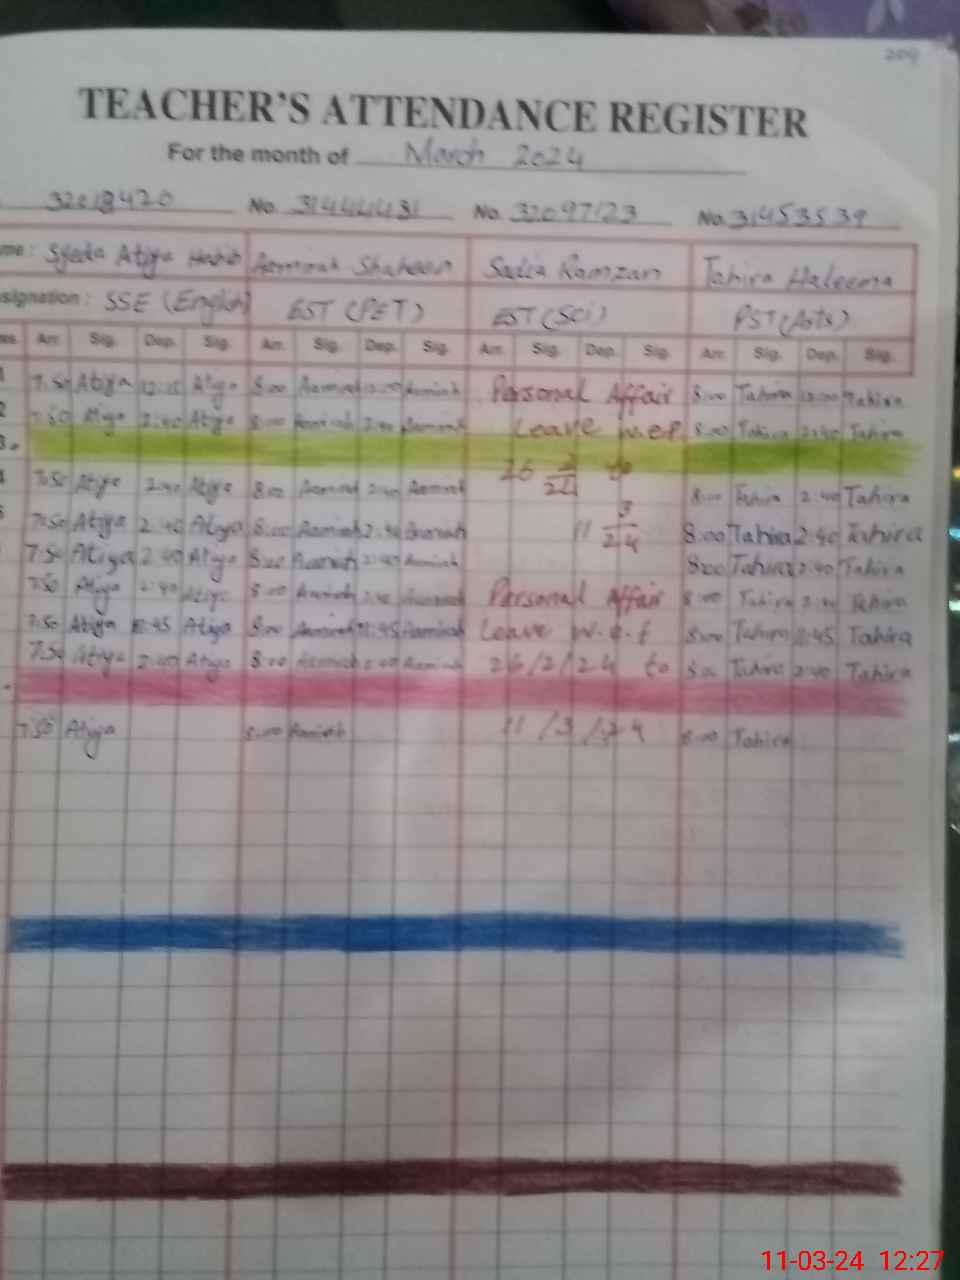 209
TEACHER'S ATTENDANCE REGISTER
For the month of March 2024
32018420 No. 31444431 No. 32097123 No. 31453539
me: Syeda Atiya Habib Aamirah Shaheen Sadia Ramzan Tahira Haleema
signation: SSE (English) EST (PET) EST (Sci) PST (Arts)
Arr. Sig. Dep. Sig. Arr. Sig. Dep. Sig. Arr. Sig. Dep. Sig. Arr. Sig. Dep. Sig.
1 7.50 Atiya Atiya 8:00 Aamirah Aamirah Personal Affair 8:00 Tahira 12:00 Tahira
2 7.50 Atiya 2:40 Atiya 8:00 Aamirah 2:40 Aamirah Leave w.e.f 8:00 Tahira 2:40 Tahira
3. 26 2/24 to
4 7:50 Atiya 2:40 Atiya 8:00 Aamirah 2:40 Aamirah 8:00 Tahira 2:40 Tahira
5 7:50 Atiya 2:40 Atiya 8:00 Aamirah 2:40 Aamirah 11 3/24 8:00 Tahira 2:40 Tahira
7:50 Atiya 2:40 Atiya 8:00 Aamirah 2:40 Aamirah 8:00 Tahira 2:40 Tahira
7:50 Atiya 2:40 Atiya 8:00 Aamirah 2:40 Aamirah Personal Affair 8:00 Tahira 2:40 Tahira
7:50 Atiya Atiya 8:00 Aamirah Aamirah Leave w.e.f 8:00 Tahira Tahira
7:50 Atiya 2:40 Atiya 8:00 Aamirah 2:40 Aamirah 26/2/24 to 8:00 Tahira 2:40 Tahira
7:50 Atiya 8:00 Aamirah 11/3/24 8:00 Tahira
11-03-24 12:27